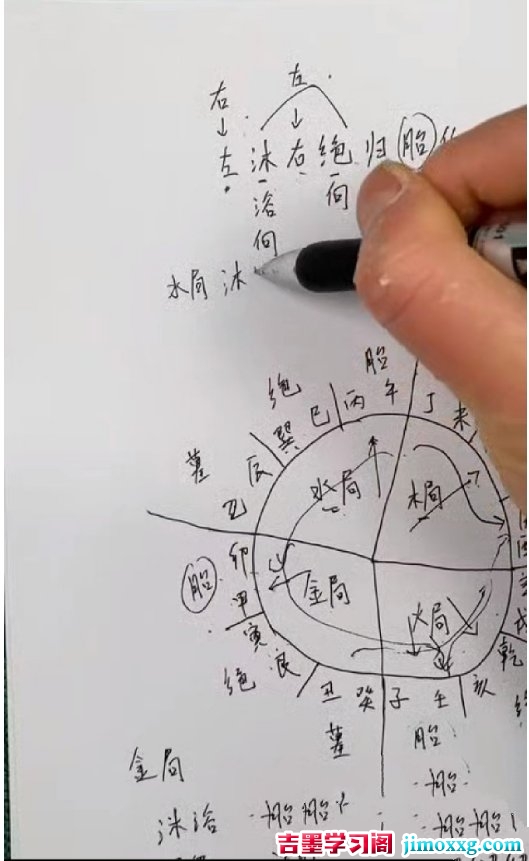 左
右
↓ ↓
左 沐 右 绝 归 胎
浴 向
向
水局 沐
胎
绝
巳 丙 午 丁 未
巽
墓 辰
乙
水局 木局
卯
胎 甲 金局 火局
寅
绝 艮 乾
丑 癸 子 壬 亥
墓 胎
金局 胎
沐浴 胎 胎
胎 胎
吉墨学习阁 jimoxxg.com